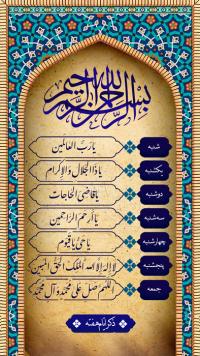 بسم الله الرحمن الرحیم
شنبه یا رب العالمین
یکشنبه یا ذا الجلال والاکرام
دوشنبه یا قاضی الحاجات
سه‌شنبه یا ارحم الراحمین
چهارشنبه یا حی یا قیوم
پنجشنبه لا اله الا الله الملک الحق المبین
جمعه اللهم صل علی محمد و آل محمد
ذکر ایام هفته